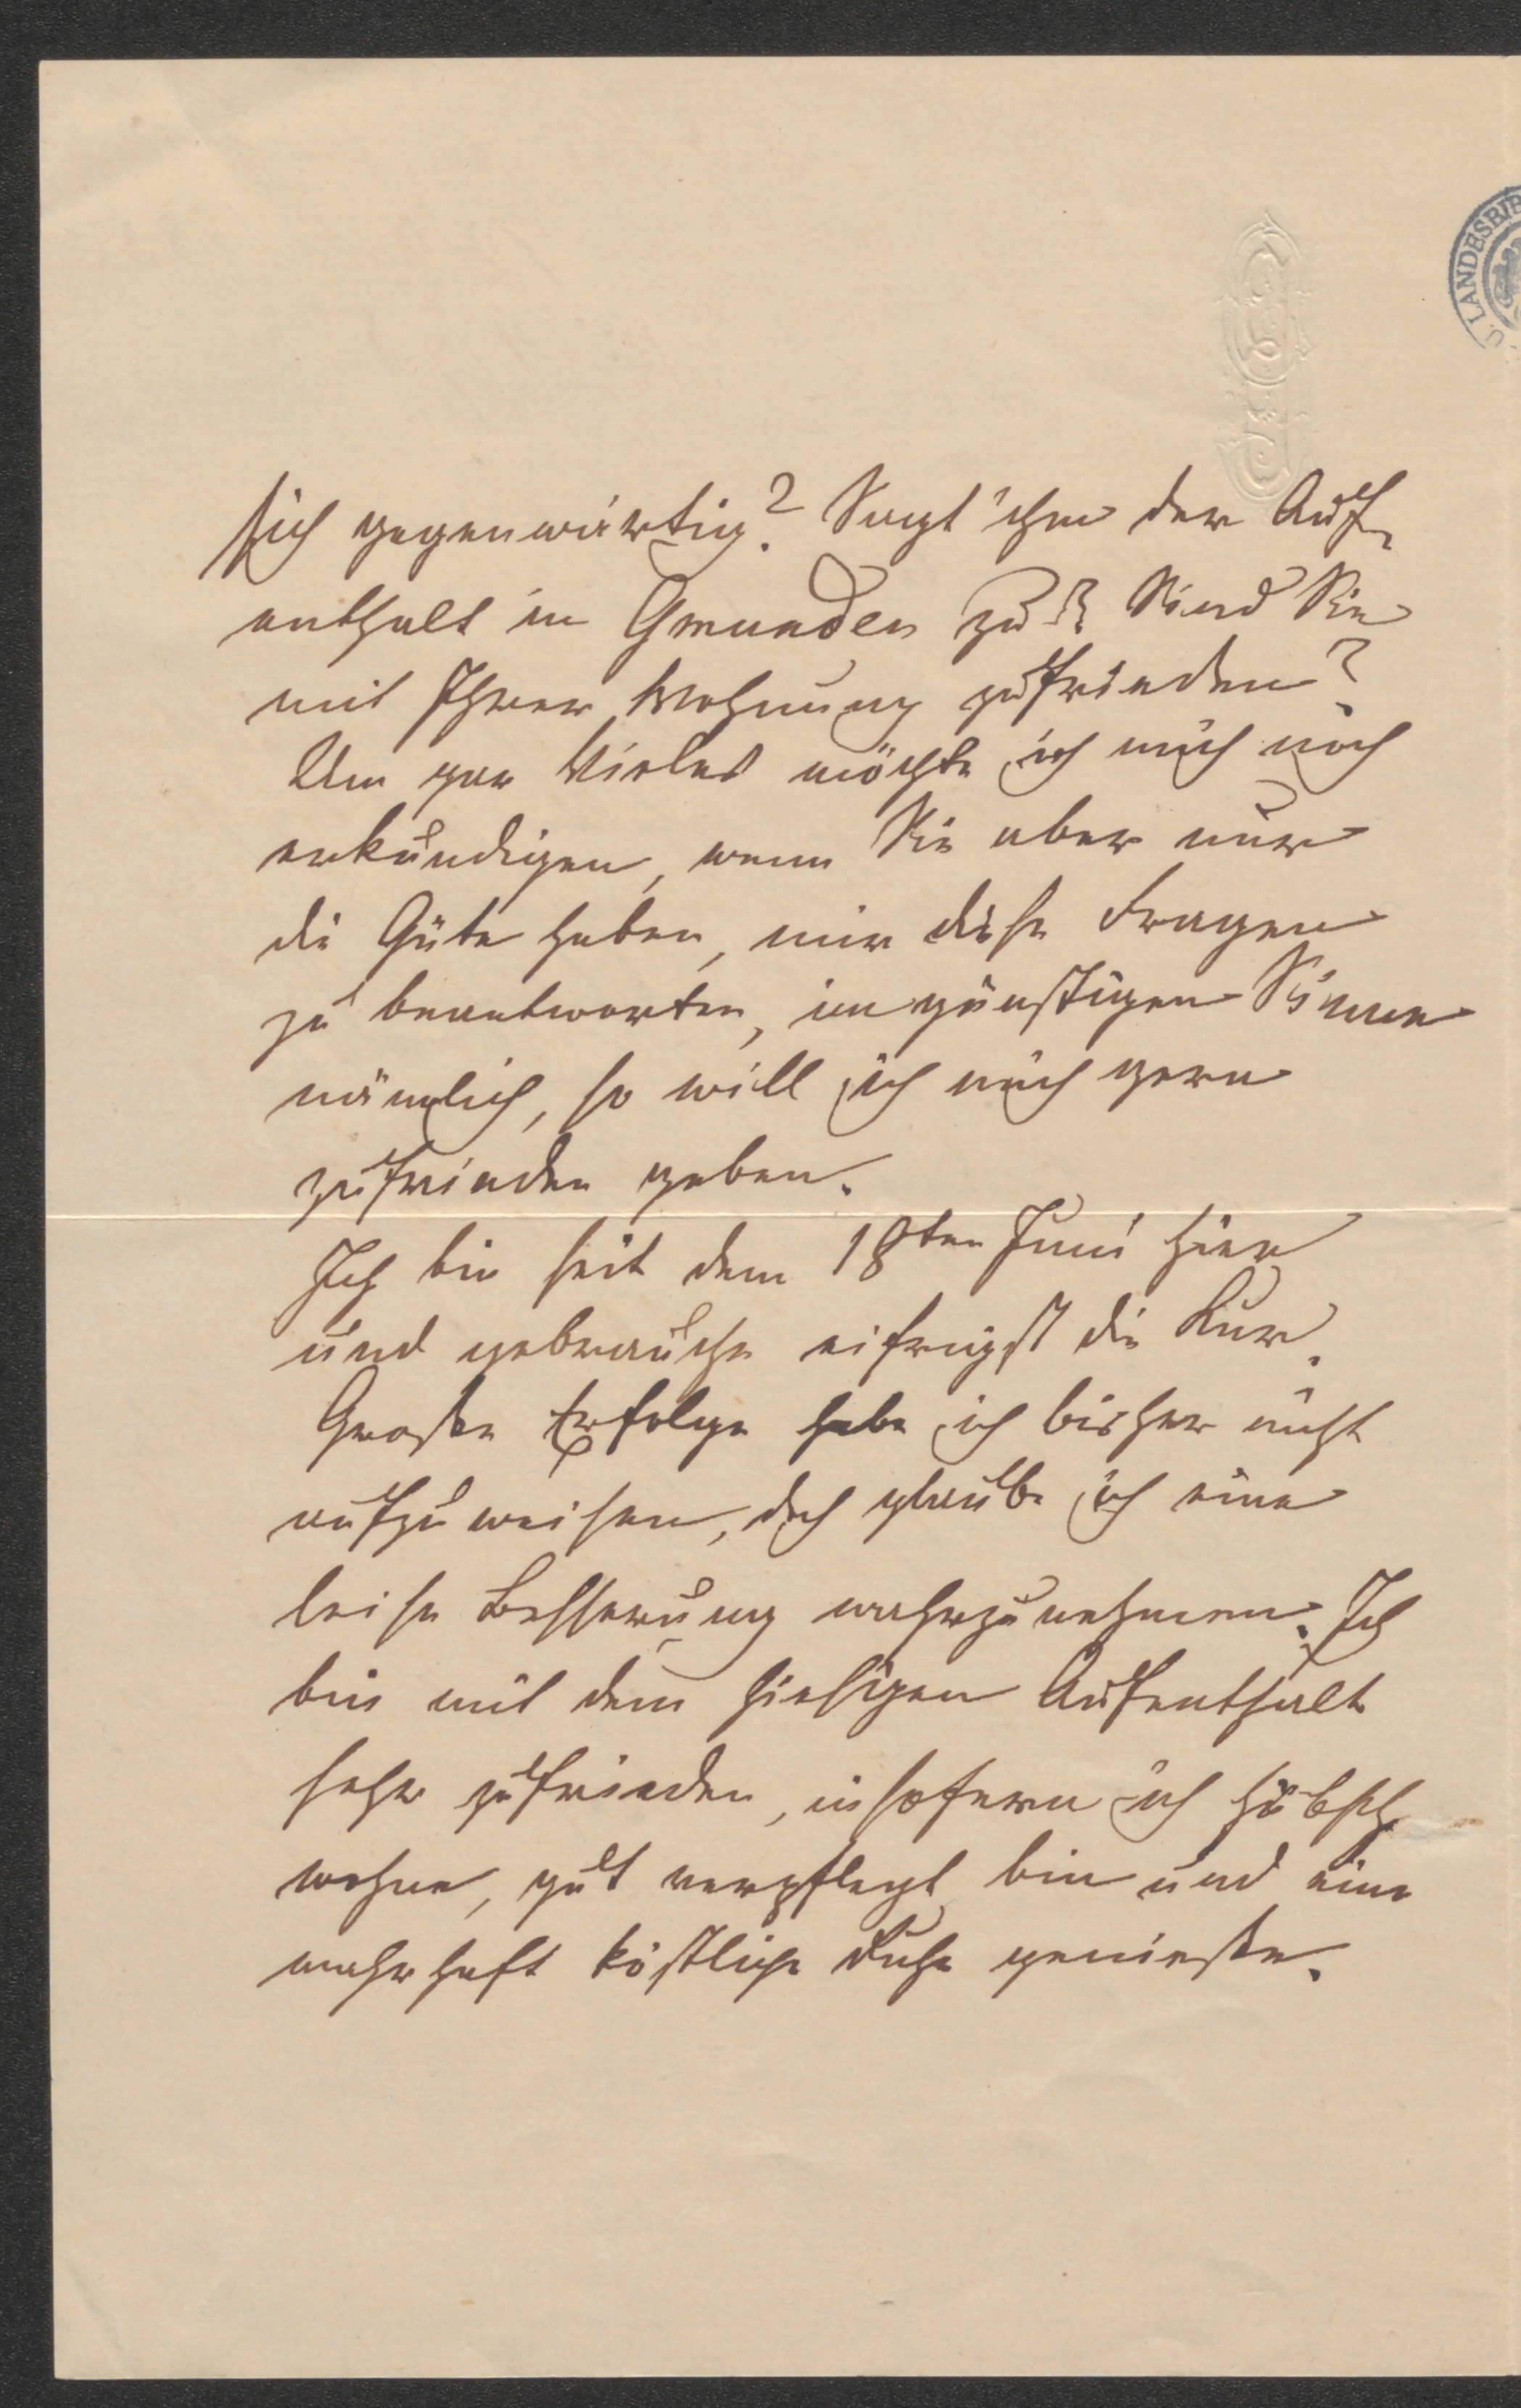 sich gegenwärtig? Sagt ihm der Auf-
enthalt in Gmunden zu? Sind Sie
mit Ihrer Wohnung zufrieden?
Um gar Vieles möchte ich mich noch
erkundigen, wenn Sie aber nur
die Güte haben, mir diese Fragen
zu beantworten, im günstigen Sinne
nämlich, so will ich mich gern
zufrieden geben.
Ich bin seit dem 18ten Juni hier
und gebrauche eifrigst die Kur.
Große Erfolge habe ich bisher nicht
aufzuweisen, doch glaube ich eine
leise Besserung wahrzunehmen. Ich
bin mit dem hiesigen Aufenthalt
sehr zufrieden, insofern ich hübsch
wohne, gut verpflegt bin und eine
wahrhaft köstliche Ruhe genieße.
LANDESBIB